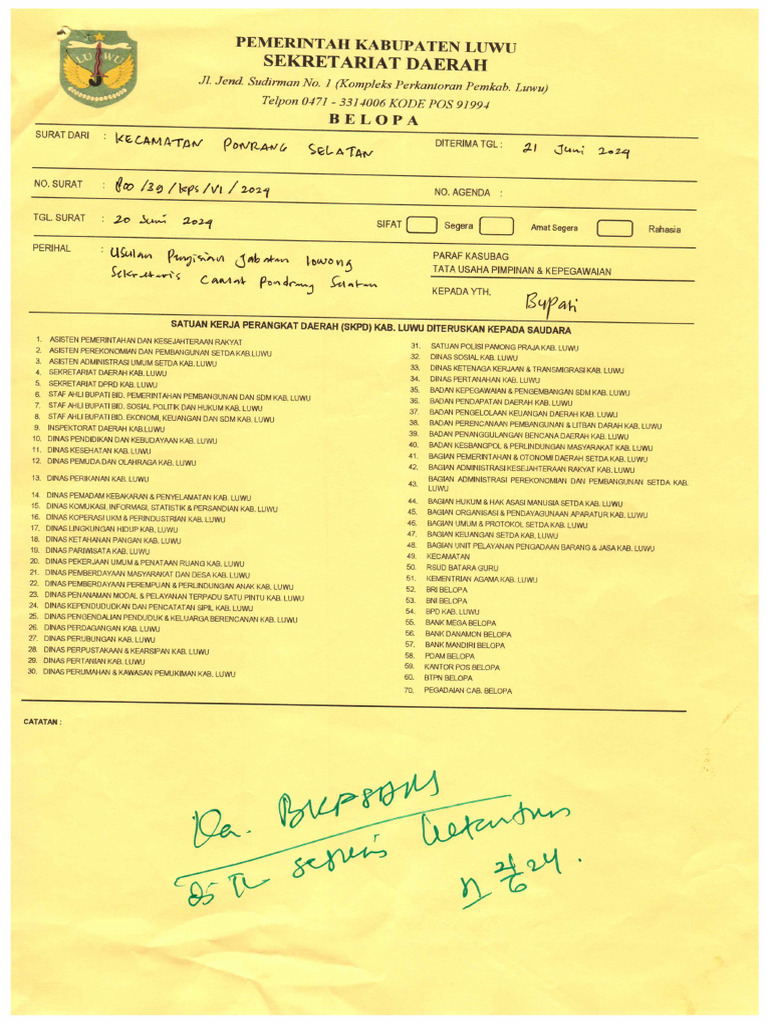 LUWU
PEMERINTAH KABUPATEN LUWU
SEKRETARIAT DAERAH
Jl. Jend. Sudirman No. 1 (Kompleks Perkantoran Pemkab. Luwu)
Telpon 0471 - 3314006 KODE POS 91994
BELOPA
SURAT DARI : KECAMATAN PONRANG SELATAN
DITERIMA TGL : 21 Juni 2024
NO. SURAT : 800/39/KPS/VI/2024
NO. AGENDA :
TGL. SURAT : 20 Juni 2024
SIFAT Segera Amat Segera Rahasia
PERIHAL : Usulan Pengisian Jabatan lowong
Sekretaris Camat Pondrang Selatan
PARAF KASUBAG
TATA USAHA PIMPINAN & KEPEGAWAIAN
KEPADA YTH. Bupati
SATUAN KERJA PERANGKAT DAERAH (SKPD) KAB. LUWU DITERUSKAN KEPADA SAUDARA
1. ASISTEN PEMERINTAHAN DAN KESEJAHTERAAN RAKYAT
2. ASISTEN PEREKONOMIAN DAN PEMBANGUNAN SETDA KAB.LUWU
3. ASISTEN ADMINISTRASI UMUM SETDA KAB. LUWU
4. SEKRETARIAT DAERAH KAB. LUWU
5. SEKRETARIAT DPRD KAB. LUWU
6. STAF AHLI BUPATI BID. PEMERINTAH PEMBANGUNAN DAN SDM KAB. LUWU
7. STAF AHLI BUPATI BID. SOSIAL POLITIK DAN HUKUM KAB. LUWU
8. STAF AHLI BUPATI BID. EKONOMI, KEUANGAN DAN SDM KAB. LUWU
9. INSPEKTORAT DAERAH KAB.LUWU
10. DINAS PENDIDIKAN DAN KEBUDAYAAN KAB. LUWU
11. DINAS KESEHATAN KAB. LUWU
12. DINAS PEMUDA DAN OLAHRAGA KAB. LUWU
13. DINAS PERIKANAN KAB. LUWU
14. DINAS PEMADAM KEBAKARAN & PENYELAMATAN KAB. LUWU
15. DINAS KOMUKASI, INFORMASI, STATISTIK & PERSANDIAN KAB. LUWU
16. DINAS KOPERASI UKM & PERINDUSTRIAN KAB. LUWU
17. DINAS LINGKUNGAN HIDUP KAB. LUWU
18. DINAS KETAHANAN PANGAN KAB. LUWU
19. DINAS PARIWISATA KAB. LUWU
20. DINAS PEKERJAAN UMUM & PENATAAN RUANG KAB. LUWU
21. DINAS PEMBERDAYAAN MASYARAKAT DAN DESA KAB. LUWU
22. DINAS PEMBERDAYAAN PEREMPUAN & PERLINDUNGAN ANAK KAB. LUWU
23. DINAS PENANAMAN MODAL & PELAYANAN TERPADU SATU PINTU KAB. LUWU
24. DINAS KEPENDUDUDKAN DAN PENCATATAN SIPIL KAB. LUWU
25. DINAS PENGENDALIAN PENDUDUK & KELUARGA BERENCANAN KAB. LUWU
26. DINAS PERDAGANGAN KAB. LUWU
27. DINAS PERUBUNGAN KAB. LUWU
28. DINAS PERPUSTAKAAN & KEARSIPAN KAB. LUWU
29. DINAS PERTANIAN KAB. LUWU
30. DINAS PERUMAHAN & KAWASAN PEMUKIMAN KAB. LUWU
31. SATUAN POLISI PAMONG PRAJA KAB. LUWU
32. DINAS SOSIAL KAB. LUWU
33. DINAS KETENAGA KERJAAN & TRANSMIGRASI KAB. LUWU
34. DINAS PERTANAHAN KAB. LUWU
35. BADAN KEPEGAWAIAN & PENGEMBANGAN SDM KAB. LUWU
36. BADAN PENDAPATAN DAERAH KAB. LUWU
37. BADAN PENGELOLAAN KEUANGAN DAERAH KAB. LUWU
38. BADAN PERENCANAAN PEMBANGUNAN & LITBAN DARAH KAB. LUWU
39. BADAN PENANGGULANGAN BENCANA DAERAH KAB. LUWU
40. BADAN KESBANGPOL & PERLINDUNGAN MASYARAKAT KAB. LUWU
41. BAGIAN PEMERINTAHAN & OTONOMI DAERAH SETDA KAB. LUWU
42. BAGIAN ADMINISTRASI KESEJAHTERAAN RAKYAT KAB. LUWU
43. BAGIAN ADMINISTRASI PEREKONOMIAN DAN PEMBANGUNAN SETDA KAB.
LUWU
44. BAGIAN HUKUM & HAK ASASI MANUSIA SETDA KAB. LUWU
45. BAGIAN ORGANISASI & PENDAYAGUNAAN APARATUR KAB. LUWU
46. BAGIAN UMUM & PROTOKOL SETDA KAB. LUWU
47. BAGIAN KEUANGAN SETDA KAB. LUWU
48. BAGIAN UNIT PELAYANAN PENGADAAN BARANG & JASA KAB. LUWU
49. KECAMATAN
50. RSUD BATARA GURU
51. KEMENTRIAN AGAMA KAB. LUWU
52. BRI BELOPA
53. BNI BELOPA
54. BPD KAB. LUWU
55. BANK MEGA BELOPA
56. BANK DANAMON BELOPA
57. BANK MANDIRI BELOPA
58. PDAM BELOPA
59. KANTOR POS BELOPA
60. BTPN BELOPA
70. PEGADAIAN CAB. BELOPA
CATATAN :
BKPSDM
21/6 24.